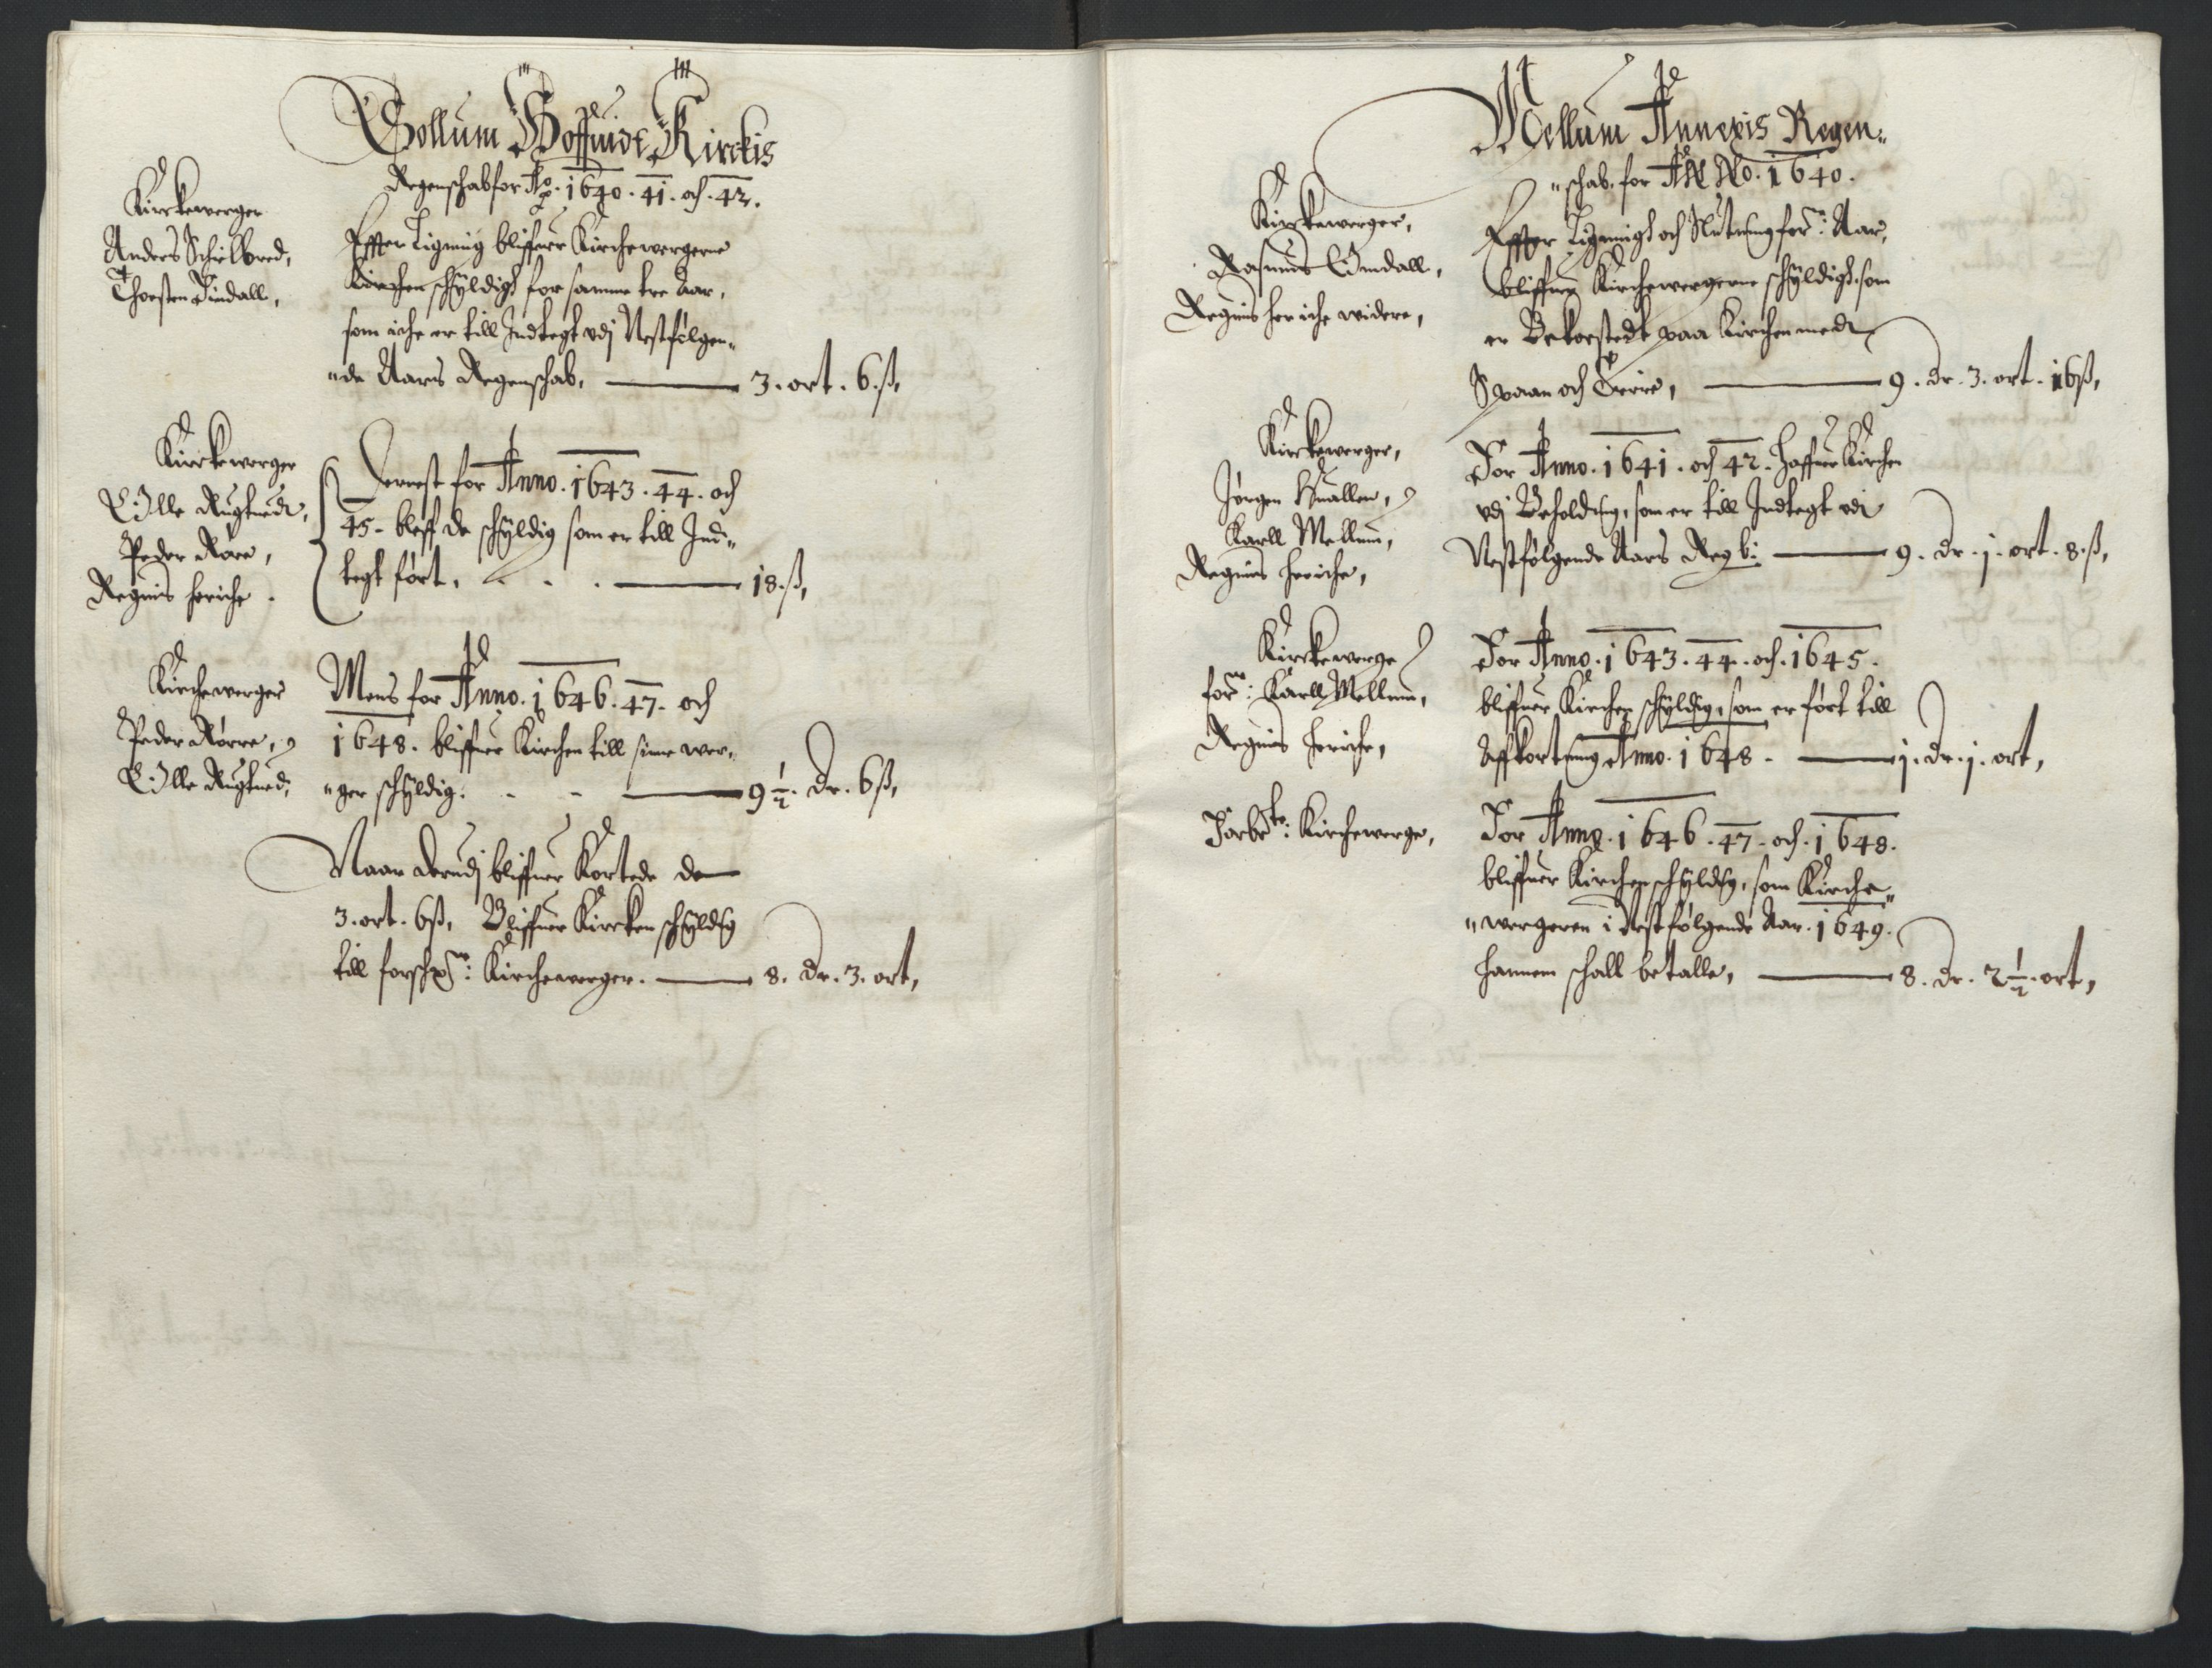 Sollum Hoffuidt Kirckis
Regenschab for Ao. 1640. 41. och. 42.
Kirckewerger
Anders Schielbred,
Thorsten Lindall,
Effter Ligning bliffuer Kirchewergerne
Kirchen schÿldigt for samme tre Aar,
som iche er till Indtegt vdj Nestfølgen„
„de Aars Regenschab, 3. ort. 6. ß,
Kirckewerger
Olle Rugtuedt,
Peder Røre,
Regnis heriche.
Dernest for Anno. 1643. 44. och
45. bleff de schÿldig som er till Ind„
tegt ført, 18. ß,
Kirchewerger
Peder Rørre,
Olle Rugtued,
Mens for Anno. 1646. 47. och
1648. bliffuer Kirchen till sinne wer„
„ger schÿldig. 9½. Dr. 6ß,
Naar Derudj bliffuer Kortede de
3. ort. 6ß, Bliffuer Kircken schÿldig
till forschne: Kirchewerger. 8. Dr. 3. ort,
Mellum Annexis Regen„
„schab. for ANNO. 1640.
Kirckewerger,
Rasmus Omdall,
Regnis her iche widere,
Effter Ligningh och Slutning forne: Aar,
bliffuer Kirchewergerne schÿldigh som
er Bekostedt paa Kirchen med
Spaan och Tierre, 9. Dr. 3. ort. 16ß,
Kirckewerger,
Jørgen Huallen,
Karll Mellum,
Regnis heriche,
For Anno. 1641. och 42. haffuer Kirchen
vdj Beholding, som er till Indtegt vdi
Nestfølgende Aars Regb: 9. Dr. j. ort. 8. ß,
Kirckewerge
forne: Karll Mellum,
Regnis heriche,
For Anno. 1643. 44. och. 1645.
bliffuer Kirchen schÿldig, som er ført till
Affkortning Anno. 1648. j. Dr. j. ort,
Forbete: Kirchewerge,
For Anno. 1646. 47. och. 1648.
bliffuer Kirchen schÿldig, som Kirche„
„wergeren i Nestfølgende Aar. 1649.
hannem schall betalle, 8. Dr. 2½. ort,